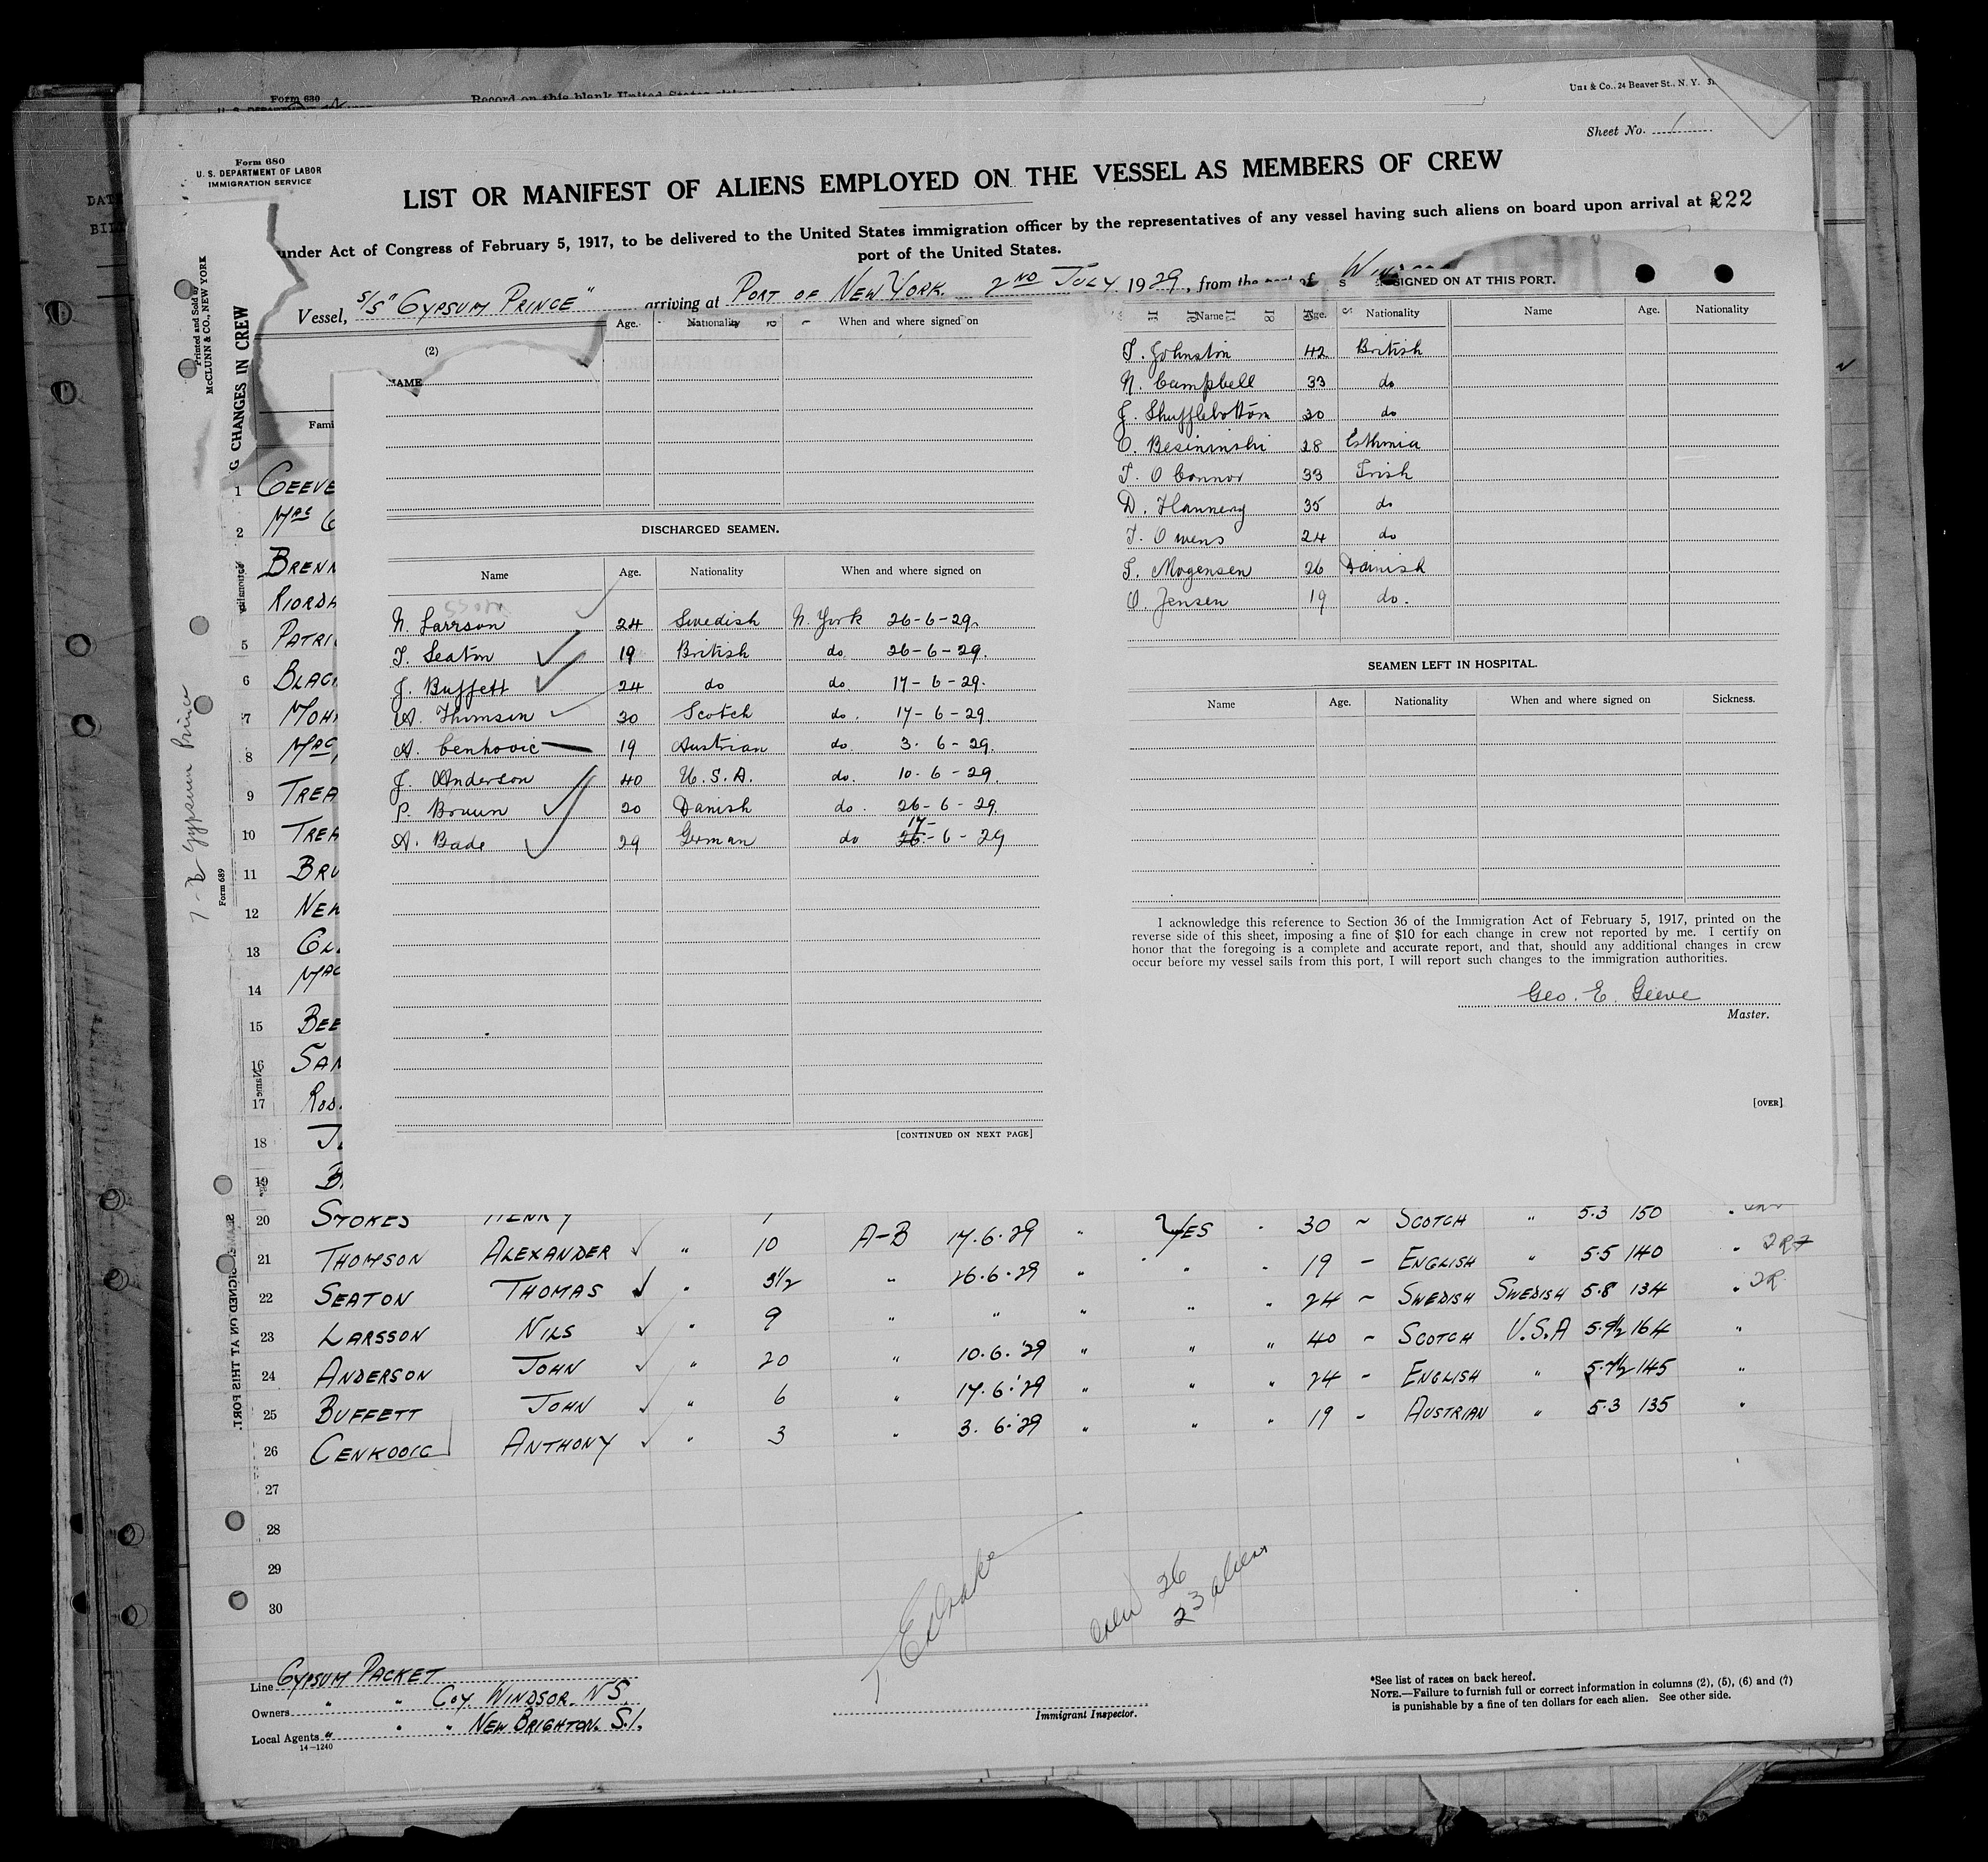 Form 630
Record on this blank United States
Uni & Co., 24 Beaver St., N. Y.
Sheet No. 1
Form 680
U. S. DEPARTMENT OF LABOR
IMMIGRATION SERVICE
LIST OR MANIFEST OF ALIENS EMPLOYED ON THE VESSEL AS MEMBERS OF CREW
222
under Act of Congress of February 5, 1917, to be delivered to the United States immigration officer by the representatives of any vessel having such aliens on board upon arrival at
port of the United States.
Vessel, S/S "GYPSUM PRINCE" arriving at PORT OF NEW YORK. 2ND JULY 1929, from the port of
Printed and Sold by
McCLUNN & CO., NEW YORK
G CHANGES IN CREW
7-2 Gypsum Prince
Form 689
SIGNED ON AT THIS PORT.
(2)
NAME
Age. Nationality When and where signed on
DISCHARGED SEAMEN.
Name Age. Nationality When and where signed on
N. Larrson 24 Swedish N. York 26-6-29.
T. Seaton 19 British do. 26-6-29.
J. Buffett 24 do do. 17-6-29.
A. Thomson 30 Scotch do. 17-6-29.
A. Cenkovic 19 Austrian do. 3.6-29.
J. Anderson 40 U.S.A. do. 10.6-29.
P. Bruun 20 Danish do. 26-6-29.
17-
A. Bade 29 German do 26-6-29
[CONTINUED ON NEXT PAGE]
SIGNED ON AT THIS PORT.
Name Age. Nationality Name Age. Nationality
T. Johnston 42 British
N. Campbell 33 do
J. Shufflebottom 30 do
O. Besininski 28 Esthonia
T. O Connor 33 Irish
D. Flannery 35 do
T. Owens 24 do
S. Mogensen 26 Danish
O. Jensen 19 do.
SEAMEN LEFT IN HOSPITAL.
Name Age. Nationality When and where signed on Sickness.
I acknowledge this reference to Section 36 of the Immigration Act of February 5, 1917, printed on the
reverse side of this sheet, imposing a fine of $10 for each change in crew not reported by me. I certify on
honor that the foregoing is a complete and accurate report, and that, should any additional changes in crew
occur before my vessel sails from this port, I will report such changes to the immigration authorities.
Geo. E. Geeve
Master.
[OVER]
Fami
1 GEEVE
2 MAC
BRENN
RIORDA
5 PATRI
6 BLAC
7 MOH
8 MAC
9 TREA
10 TREA
11 BRU
12 NEW
13 GL
14 MAC
15 BEE
16 SAN
17 ROB
18 J
19 B
20 STOKES HENRY
21 THOMSON ALEXANDER " 10 A-B 17.6.29 " YES " 30 - SCOTCH " 5.3 150 "
22 SEATON THOMAS " 3½ " 26.6.29 " " " 19 - ENGLISH " 5.5 140 "
23 LARSSON NILS " 9 " " " " " 24 - SWEDISH SWEDISH 5.8 134 "
24 ANDERSON JOHN " 20 " 10.6.'29 " " " 40 - SCOTCH U.S.A 5.9½ 164 "
25 BUFFETT JOHN " 6 " 17.6.'29 " " " 24 - ENGLISH " 5.7½ 145 "
26 CENKODIC ANTHONY " 3 " 3.6.'29 " " " 19 - AUSTRIAN " 5.3 135 "
27
28
29
30
crew 26
23 aliens
Line GYPSUM PACKET
Owners " " COY. WINDSOR. N.S.
Local Agents " " " NEW BRIGHTON. S.I.
14-1240
Immigrant Inspector.
*See list of races on back hereof.
NOTE.—Failure to furnish full or correct information in columns (2), (5), (6) and (7)
is punishable by a fine of ten dollars for each alien. See other side.